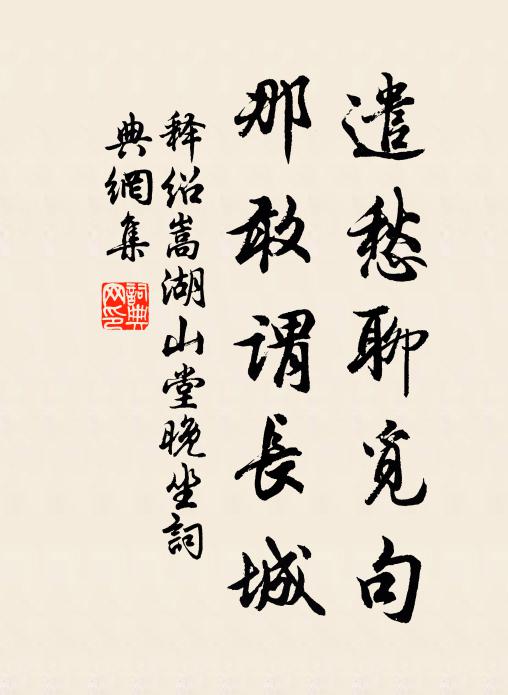 遣愁聊覓句
那敢謂長城
释绍嵩湖山堂晚坐詞
典網集
詞典网印